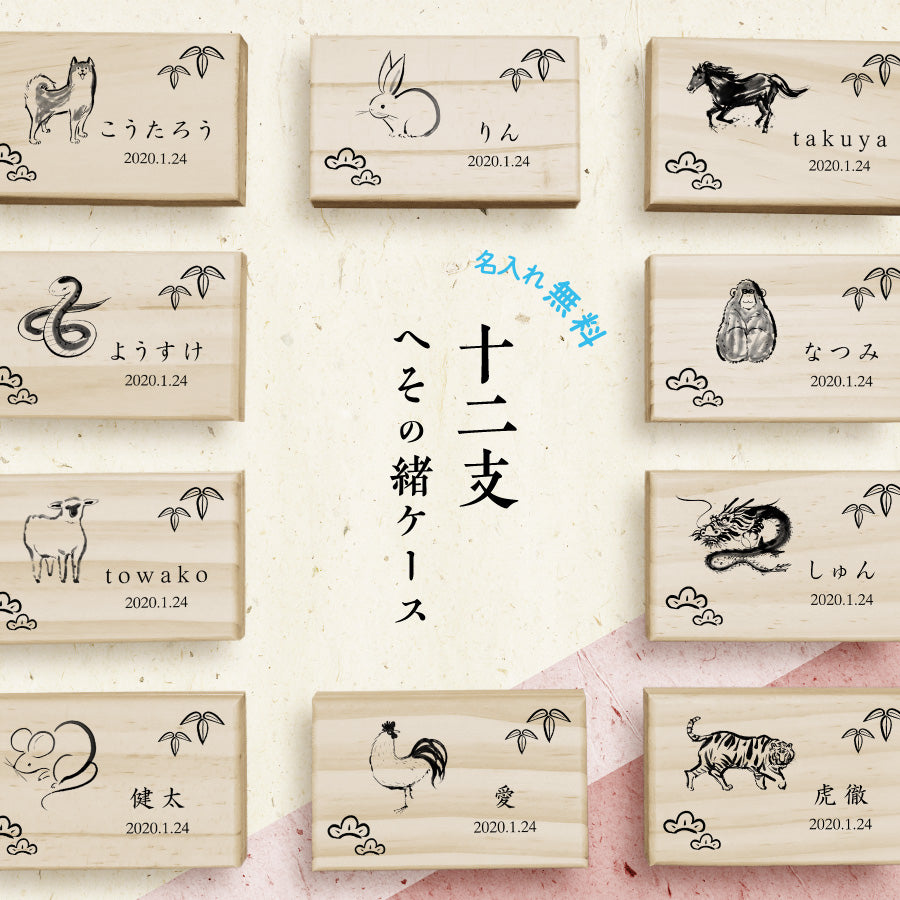 こうたろう
2020.1.24
りん
2020.1.24
takuya
2020.1.24
名入れ無料
十二支
へその緒ケース
ようすけ
2020.1.24
なつみ
2020.1.24
towako
2020.1.24
しゅん
2020.1.24
健太
2020.1.24
愛
2020.1.24
虎徹
2020.1.24